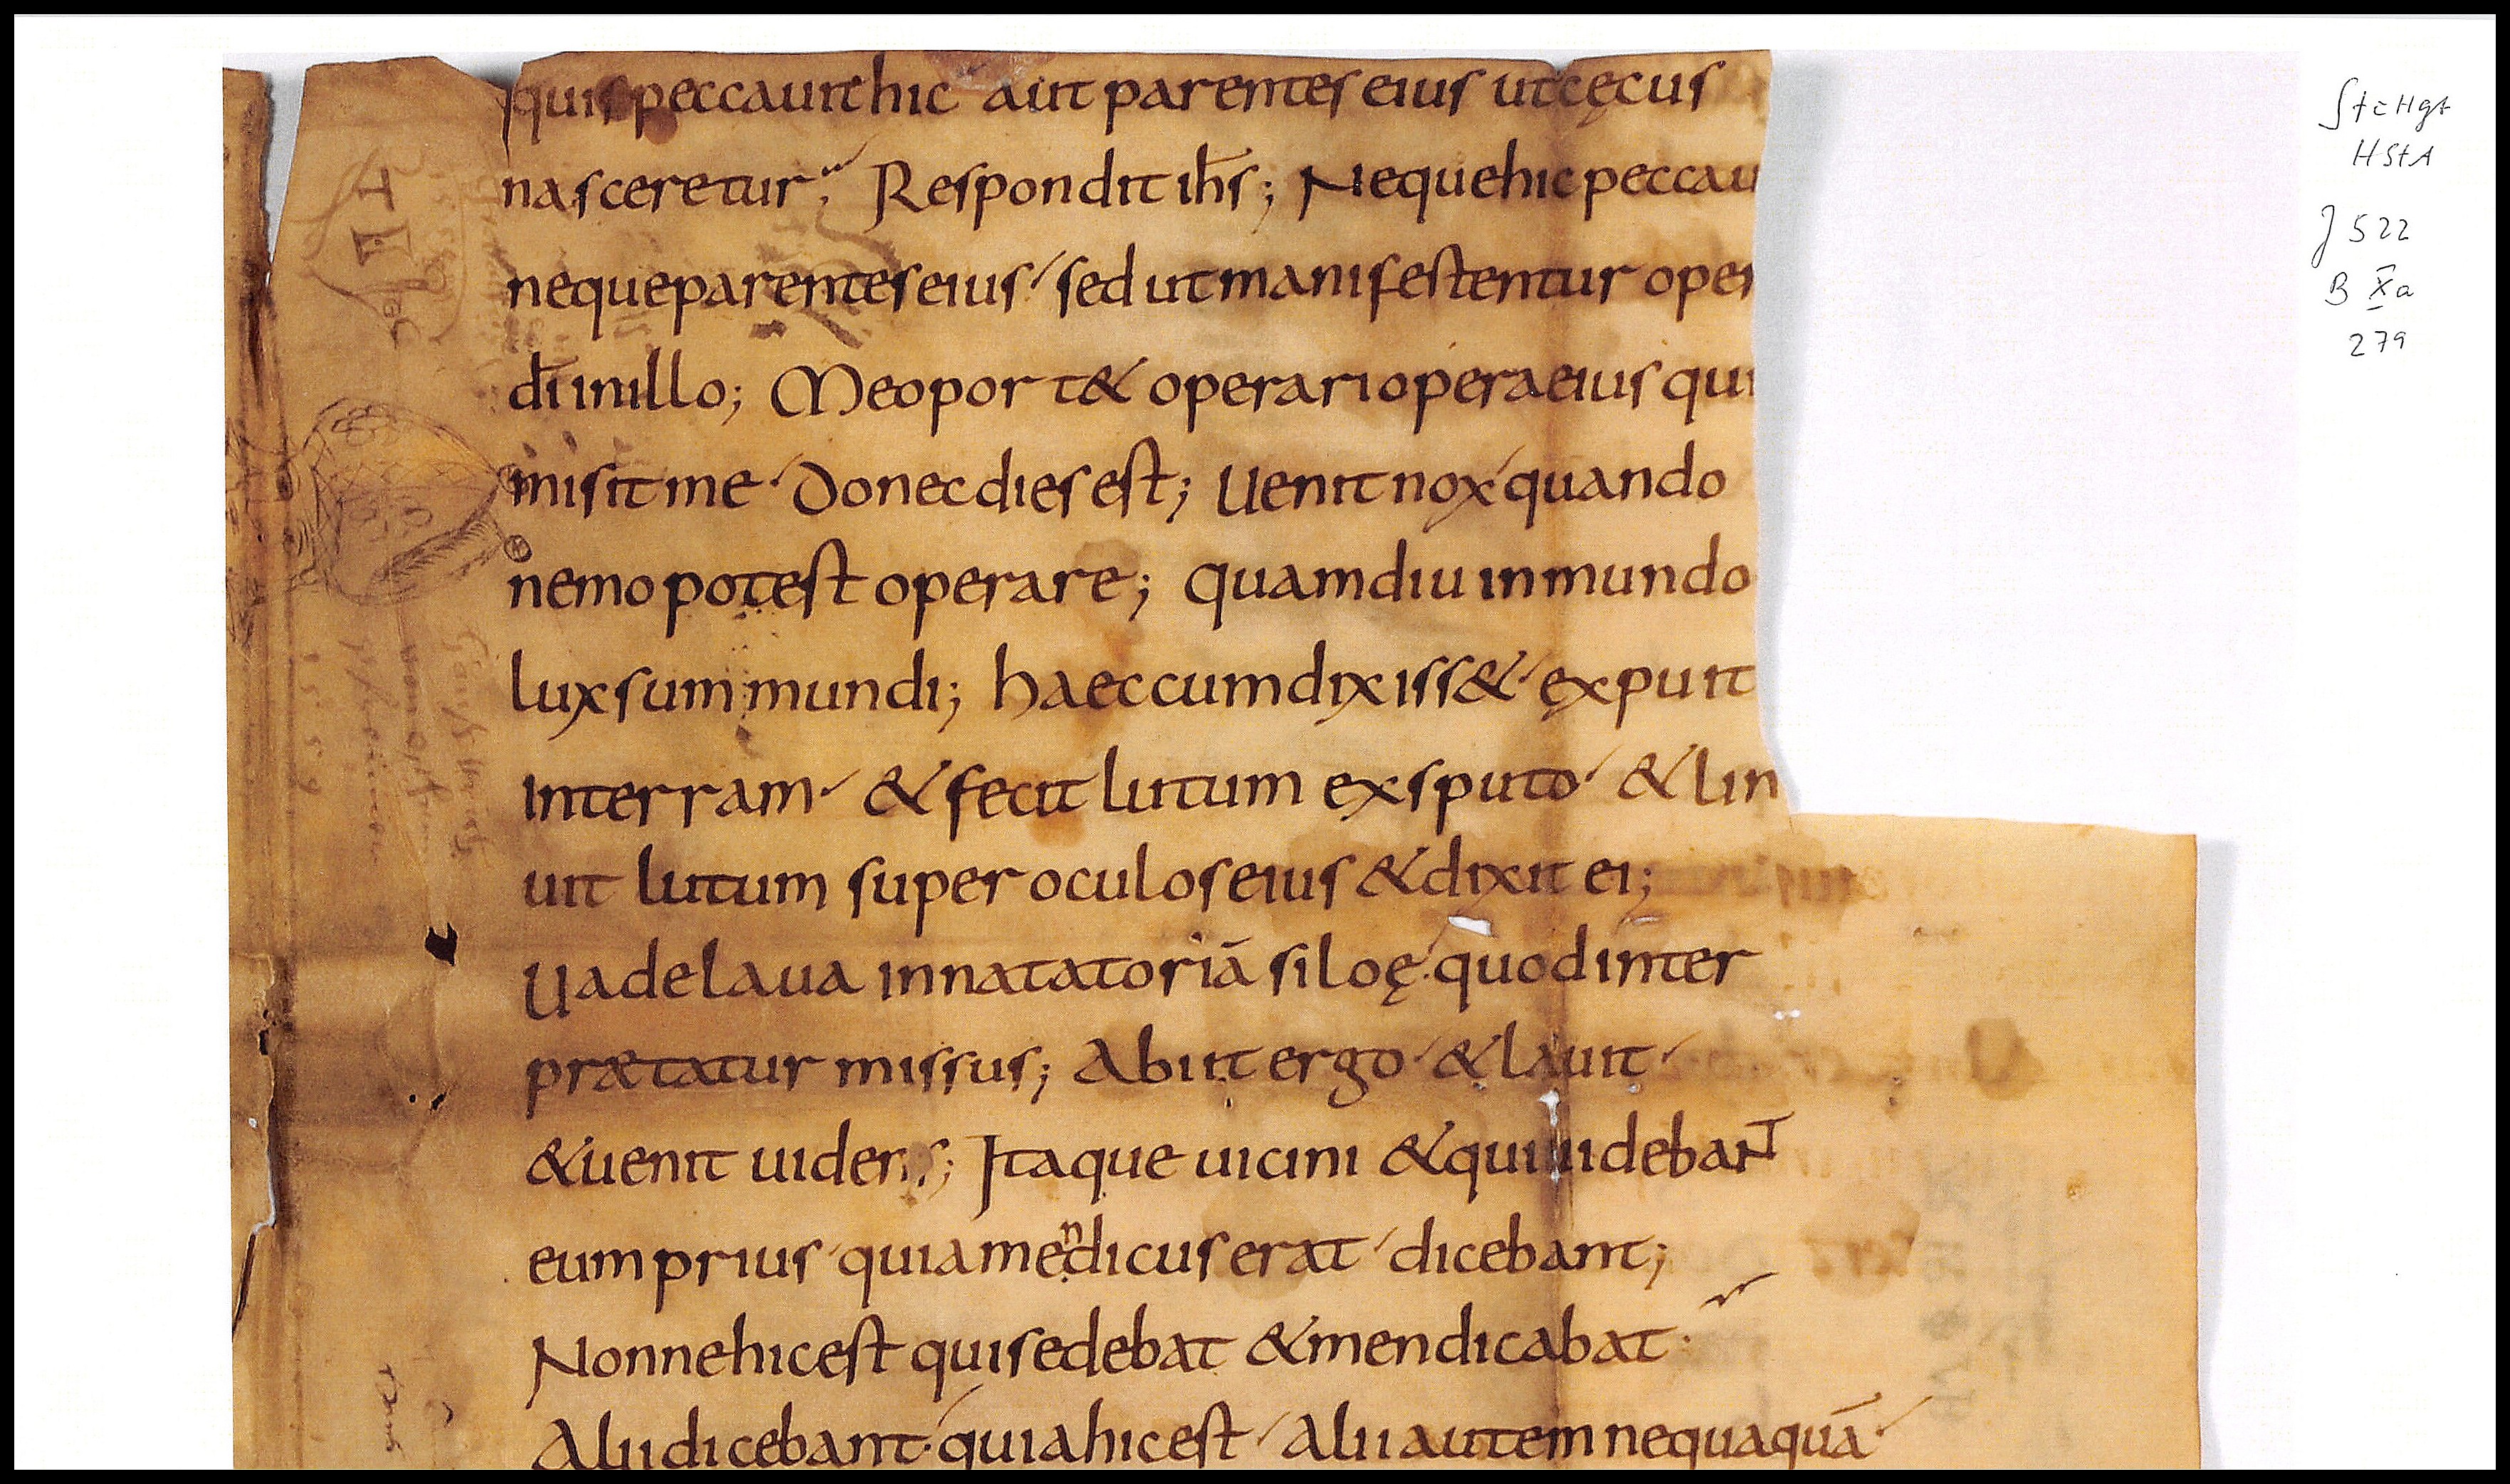 quis peccauit hic aut parentes eius ut cęcus
nasceretur; Respondit ihs̄; Neque hic peccau
neque parentes eius sed ut manifestentur oper
dī in illo; Me oport& operari opera eius qui
misit me Donec dies est; Uenit nox quando
nemo potest operare; quamdiu in mundo
lux sum mundi; haec cum dixiss& expuit
in terram & fecit lutum ex sputo & lin
uit lutum super oculos eius & dixit ei;
Uade laua in natatoriā siloę quod inter
prætatur missus; Abiit ergo & lauit
& uenit uidens; Itaque uicini & qui uidebaNT
eum prius quia mendicus erat dicebant;
Nonne hic est qui sedebat & mendicabat
Alii dicebant quia hic est Alii autem nequaquā
Stettgt
HStA
J 522
B X a
279